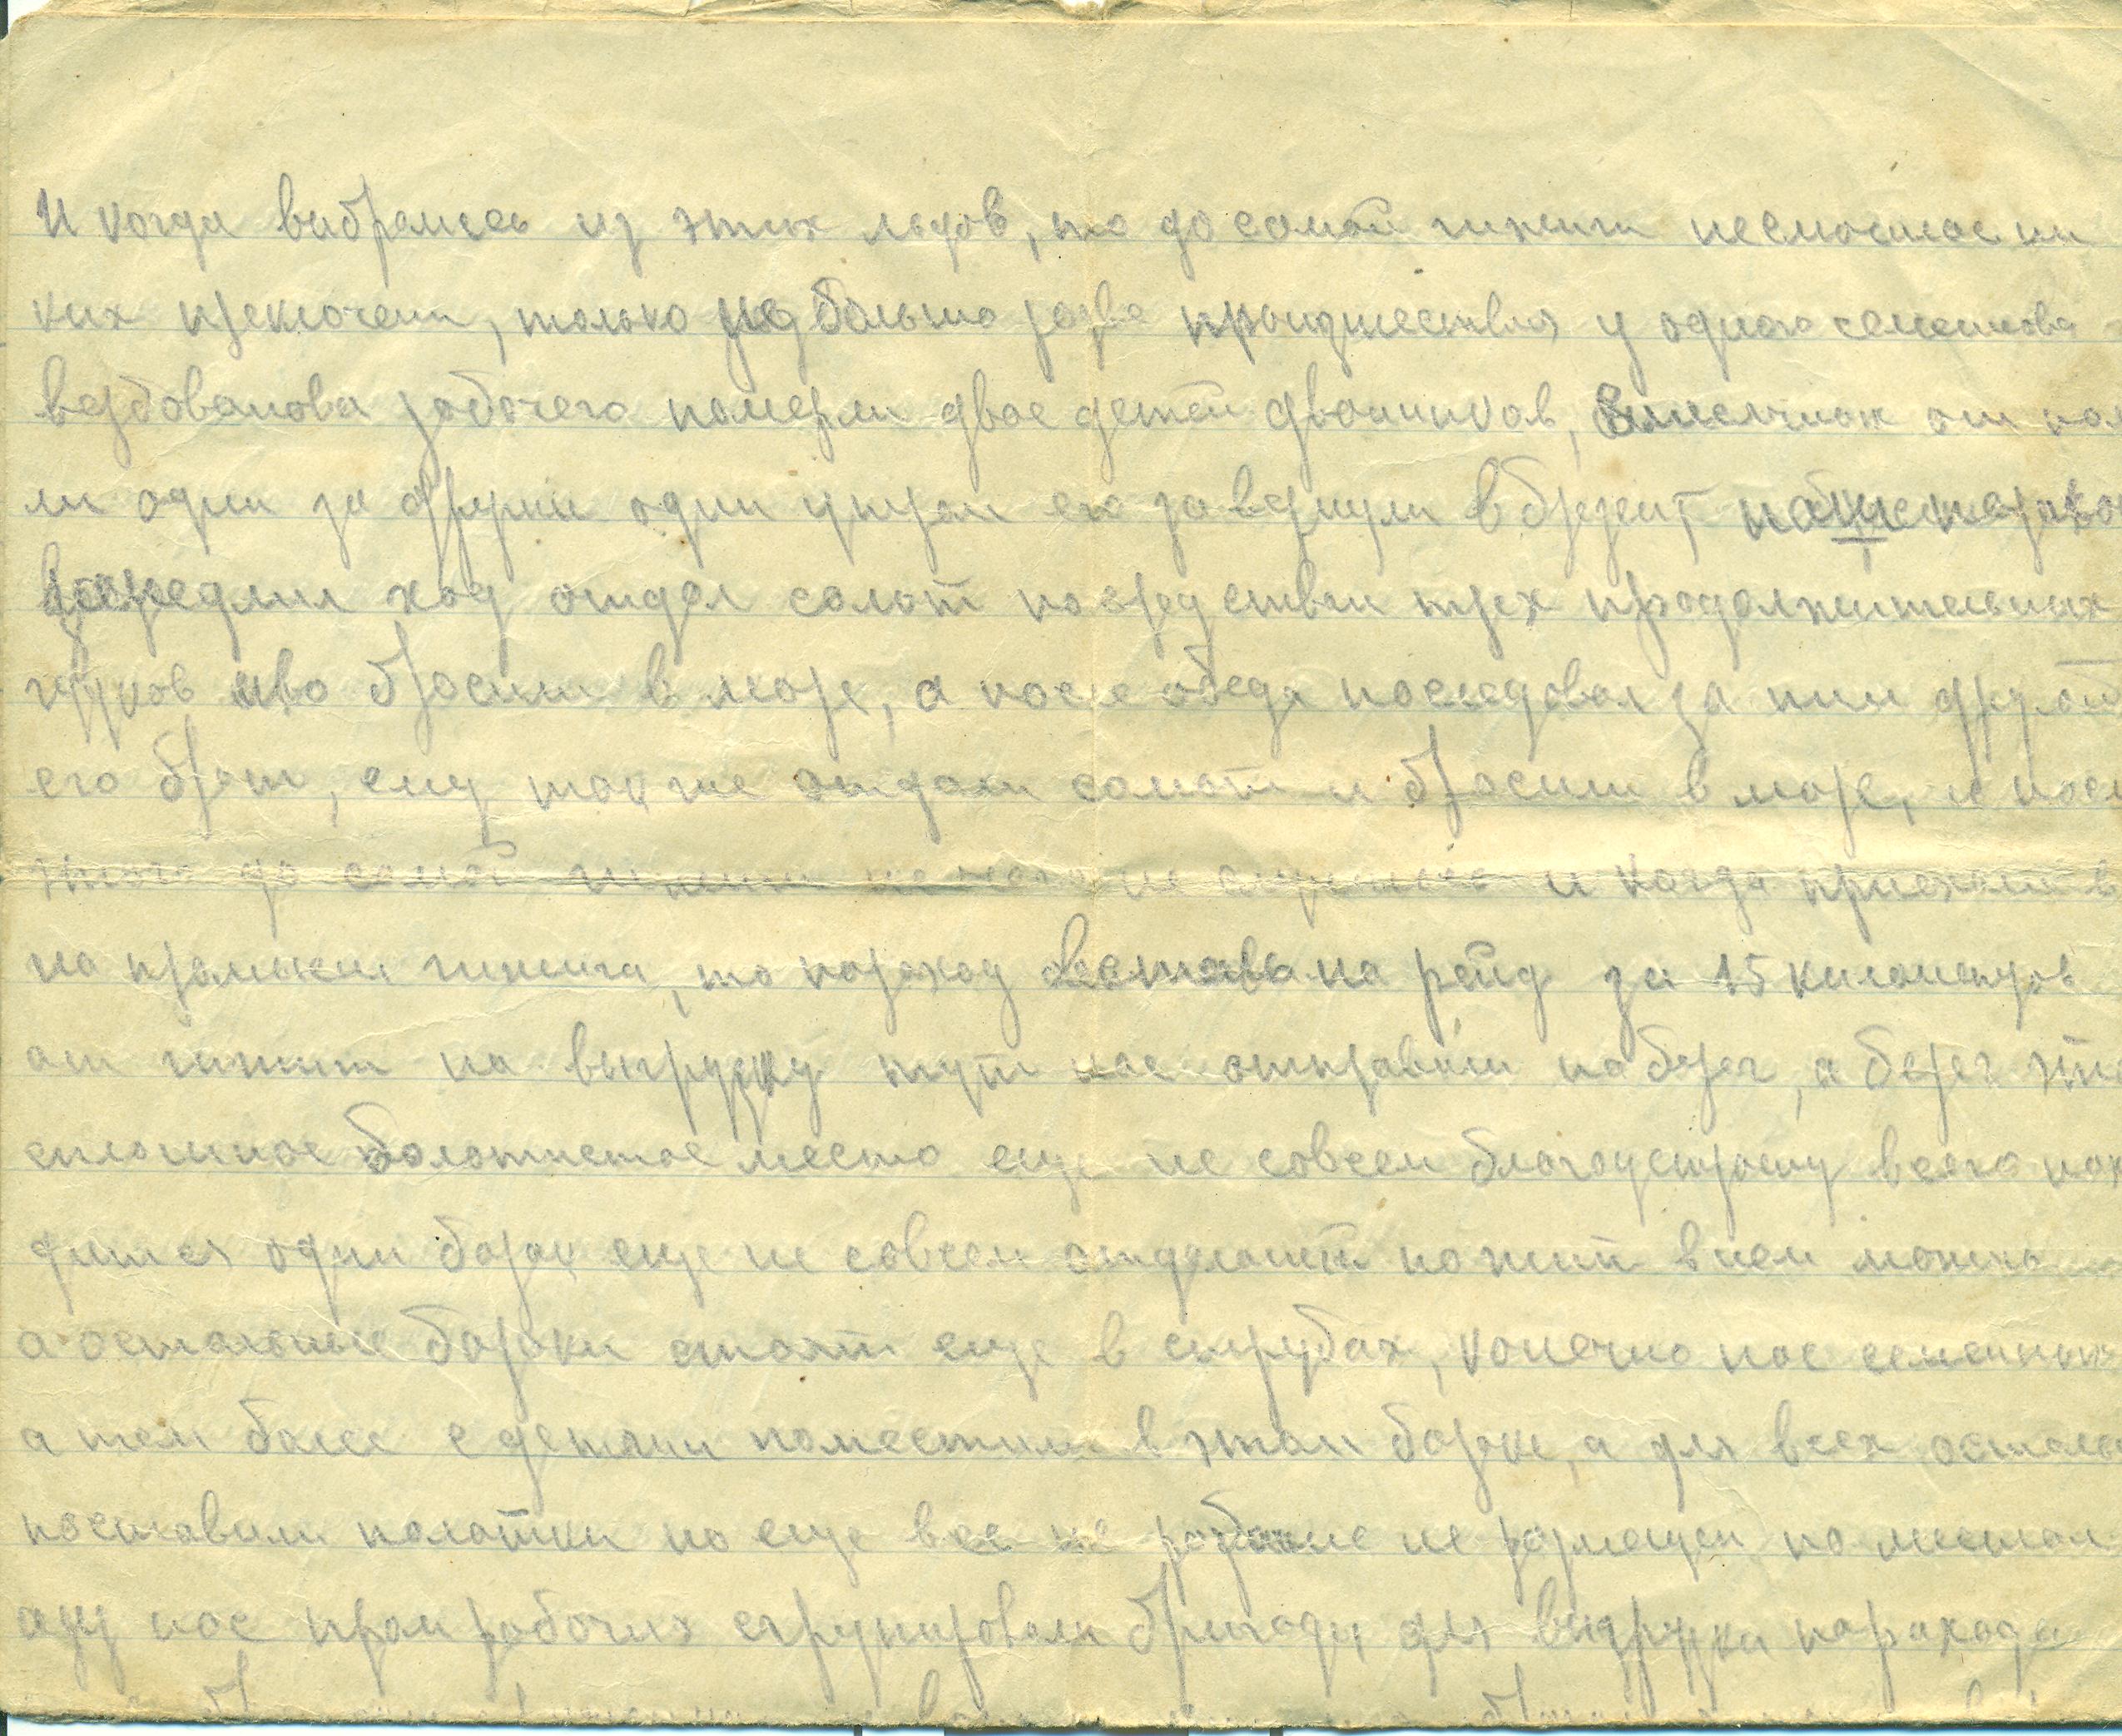 И когда выбрались из этих льдов, то до самой гижиги неслочилос ни
ких преключени, только небольшо разве проиджествия у одного семейнова
вербованова рабочего померли двое детей двойников,
ли один за другим один умрал его завернули в брезент
ход отдал салют посредствии трех продолжительных
гудков иво бросили в море, а после обеда последовал за ним другой
его брат, ему так же отдали салют и бросили в море, и посл
этого до самой гижиги не чего не случилось и когда приехали в
на промысил гижига, то пароход на рейд за 15 километров
от гижиги на выгрузку тут нас отправили на берег, а берег это
сплошное болотистое место еще не совсем благоустроену всего нах
дится один барак еще не совсем отделаный но жит в нем можно
а остальные бараки стоят еще в струбах, конечно нас семейных
а тем более с детями поместили в этом бараке, а для всех осталь
поставили полатки но еще все не рабочие не размещен по местам
нас пром рабочих сгрупировали бригаду для выгрузки парахода